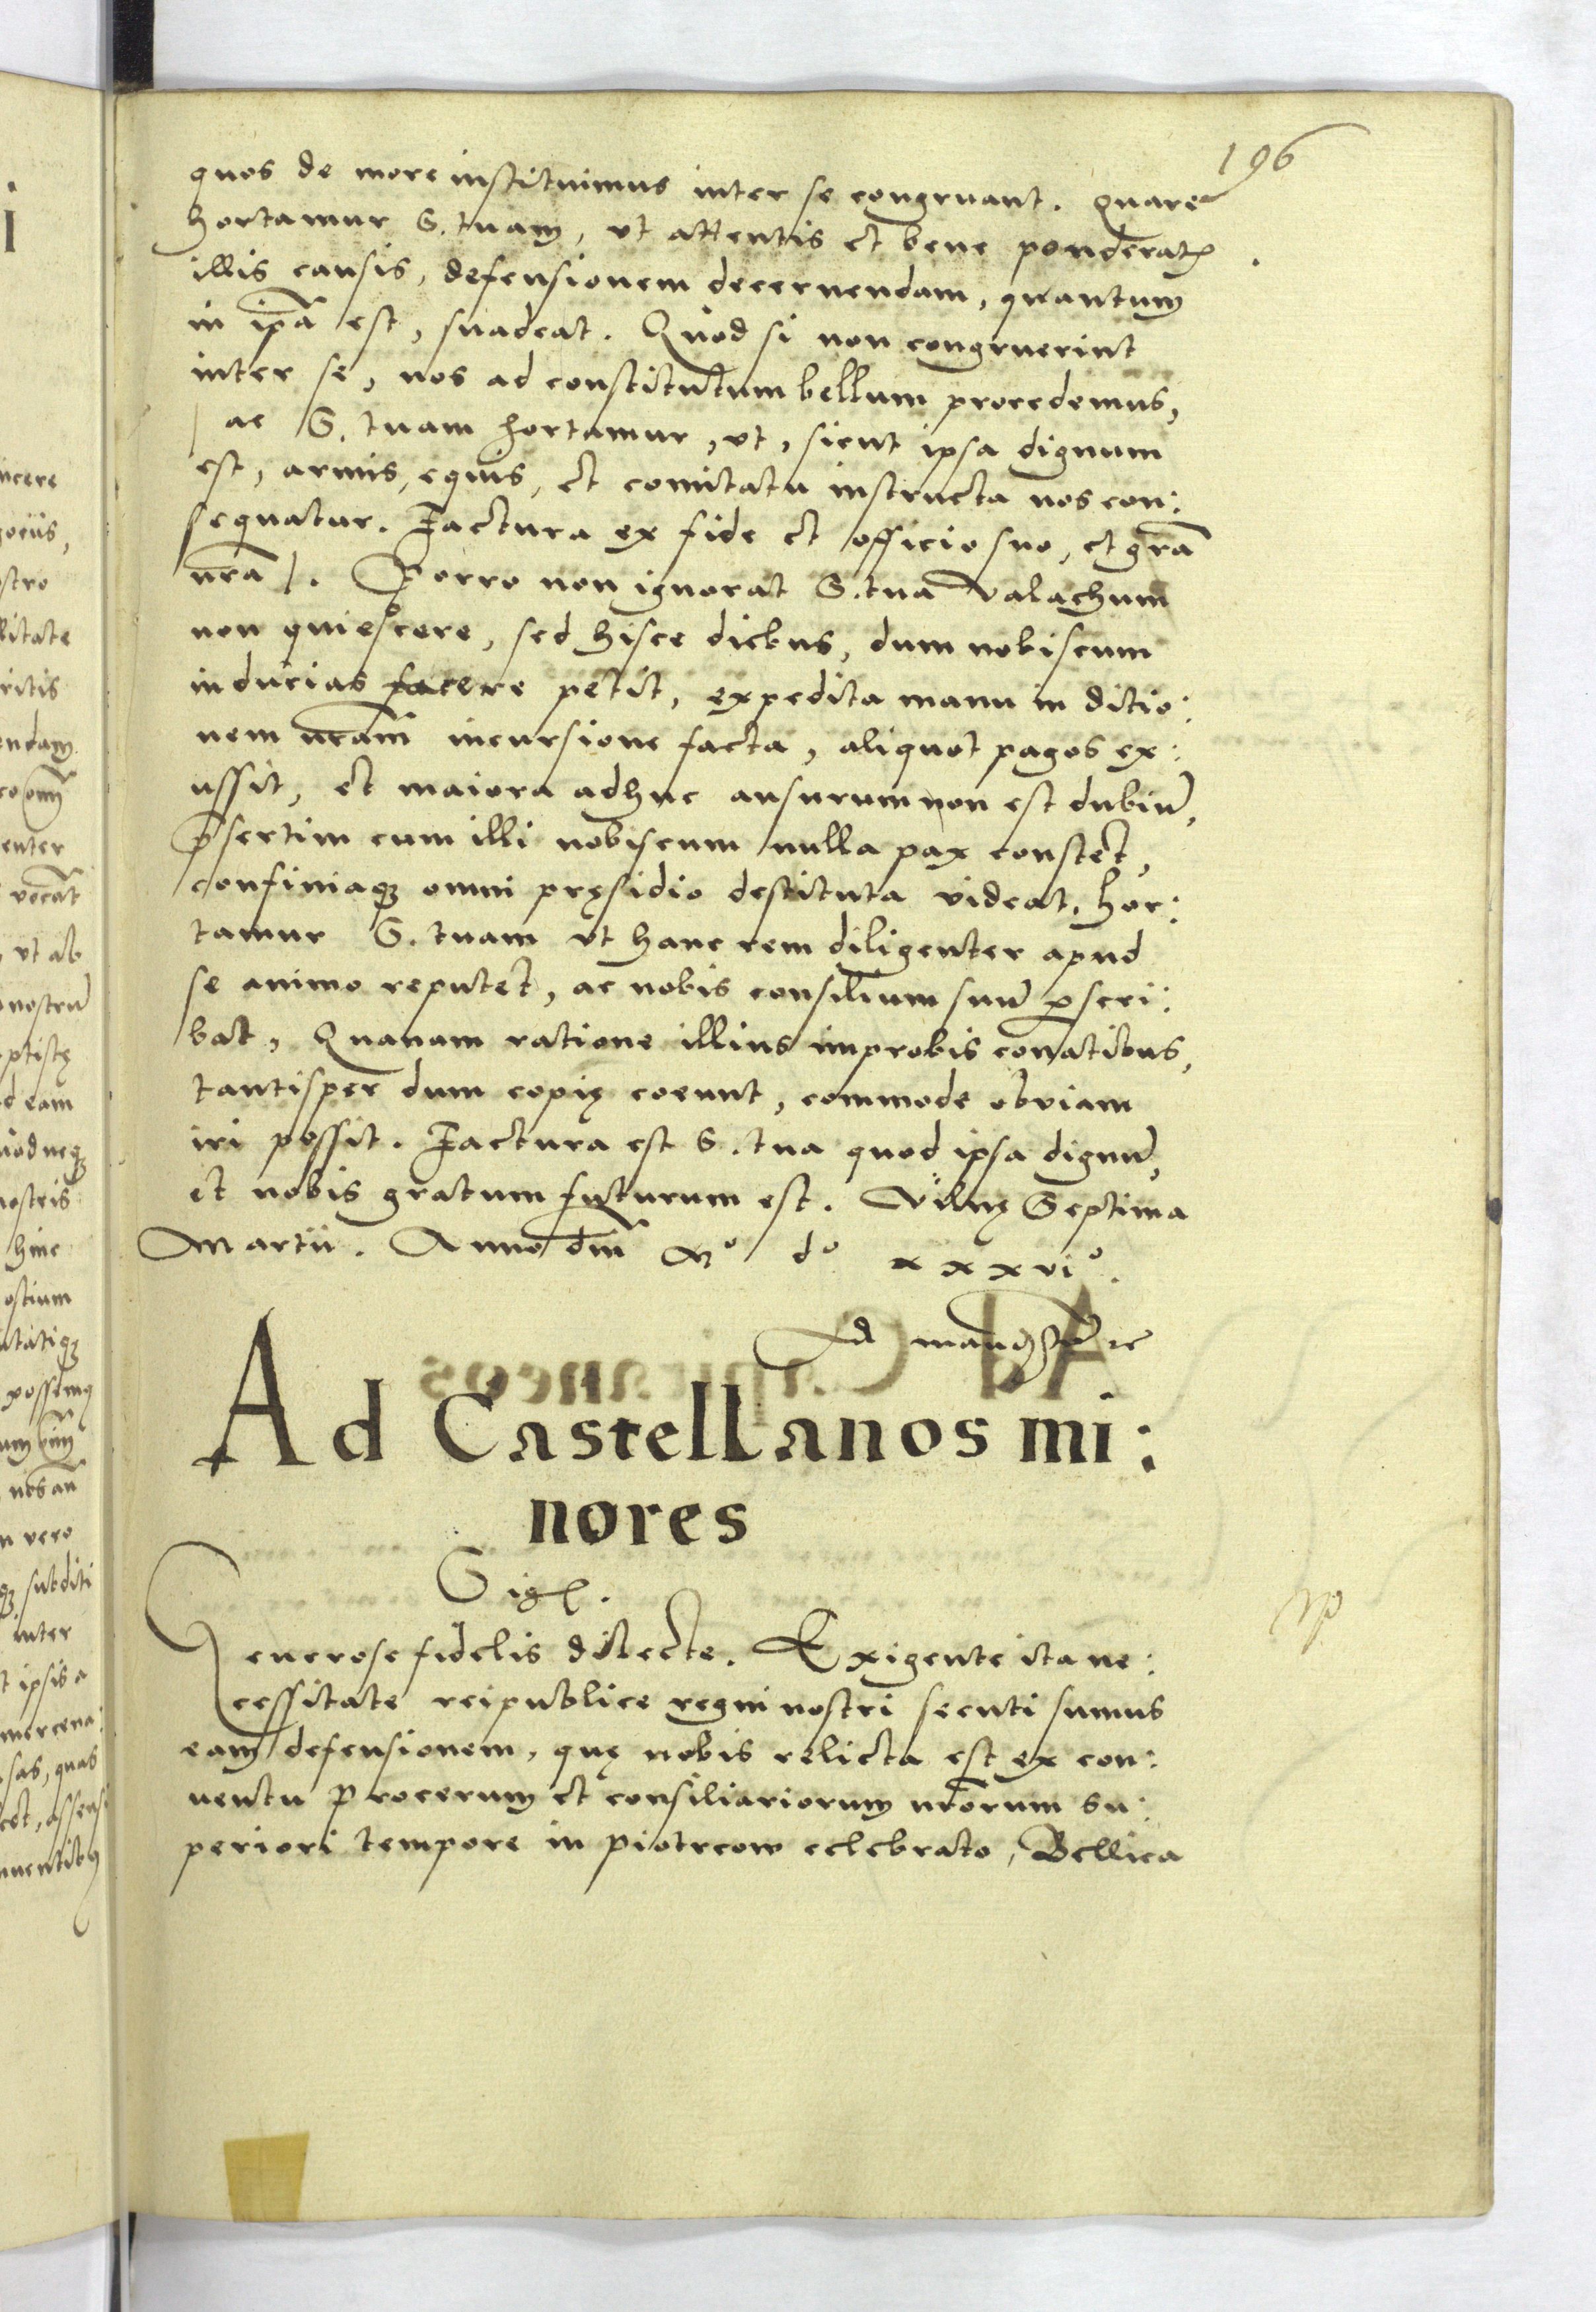 196
quos de more instituimus inter se congruant. Quare
hortamur S. tuam, ut attentis et bene ponderat(is)
illis causis, defensionem decernendam, quantum
in ip̃a est, suadeat. Quod si non congruerint
inter se, nos ad constitutum bellum procedemus,
ac S. tuam hortamur, ut, sicut ipsa dignum
est, armis, equis, et comitatu instructa nos con:
sequatur. Factura ex fide et officio suo, et gr̃a
nr̃a. Porro non ignorat S. tua Valachum
non quiescere, sed hisce diebus, dum nobiscum
inducias facere petit, expedita manu in ditio:
nem nr̃am incursione facta, aliquot pagos ex:
ussit, et maiora adhuc ausurum non est dubiũ,
p̃sertim cum illi nobiscum nulla pax constet,
confiniaqȝ omni pręsidio destituta videat. Hor:
tamur S. tuam ut hanc rem diligenter apud
se animo reputet, ac nobis consilium suũ ꝑscri:
bat, Quanam ratione illius improbis conatibus,
tantisper dum copię coeunt, commode obviam
iri possit. Factura est S. tua quod ipsa dignũ,
et nobis gratum futurum est. Vilnę Septima
Martii. Anno dñi Mº dº xxxviº.
Ad mand
Ad Castellanos mi:
nores
Sig
Generose fidelis dilecte. Exigente ita ne:
cessitate reipublice regni nostri secuti sumus
eam defensionem, quę nobis relicta est ex con:
ventu procerum et consiliariorum nr̃orum su:
periori tempore in piotrcow celebrato, Bellica